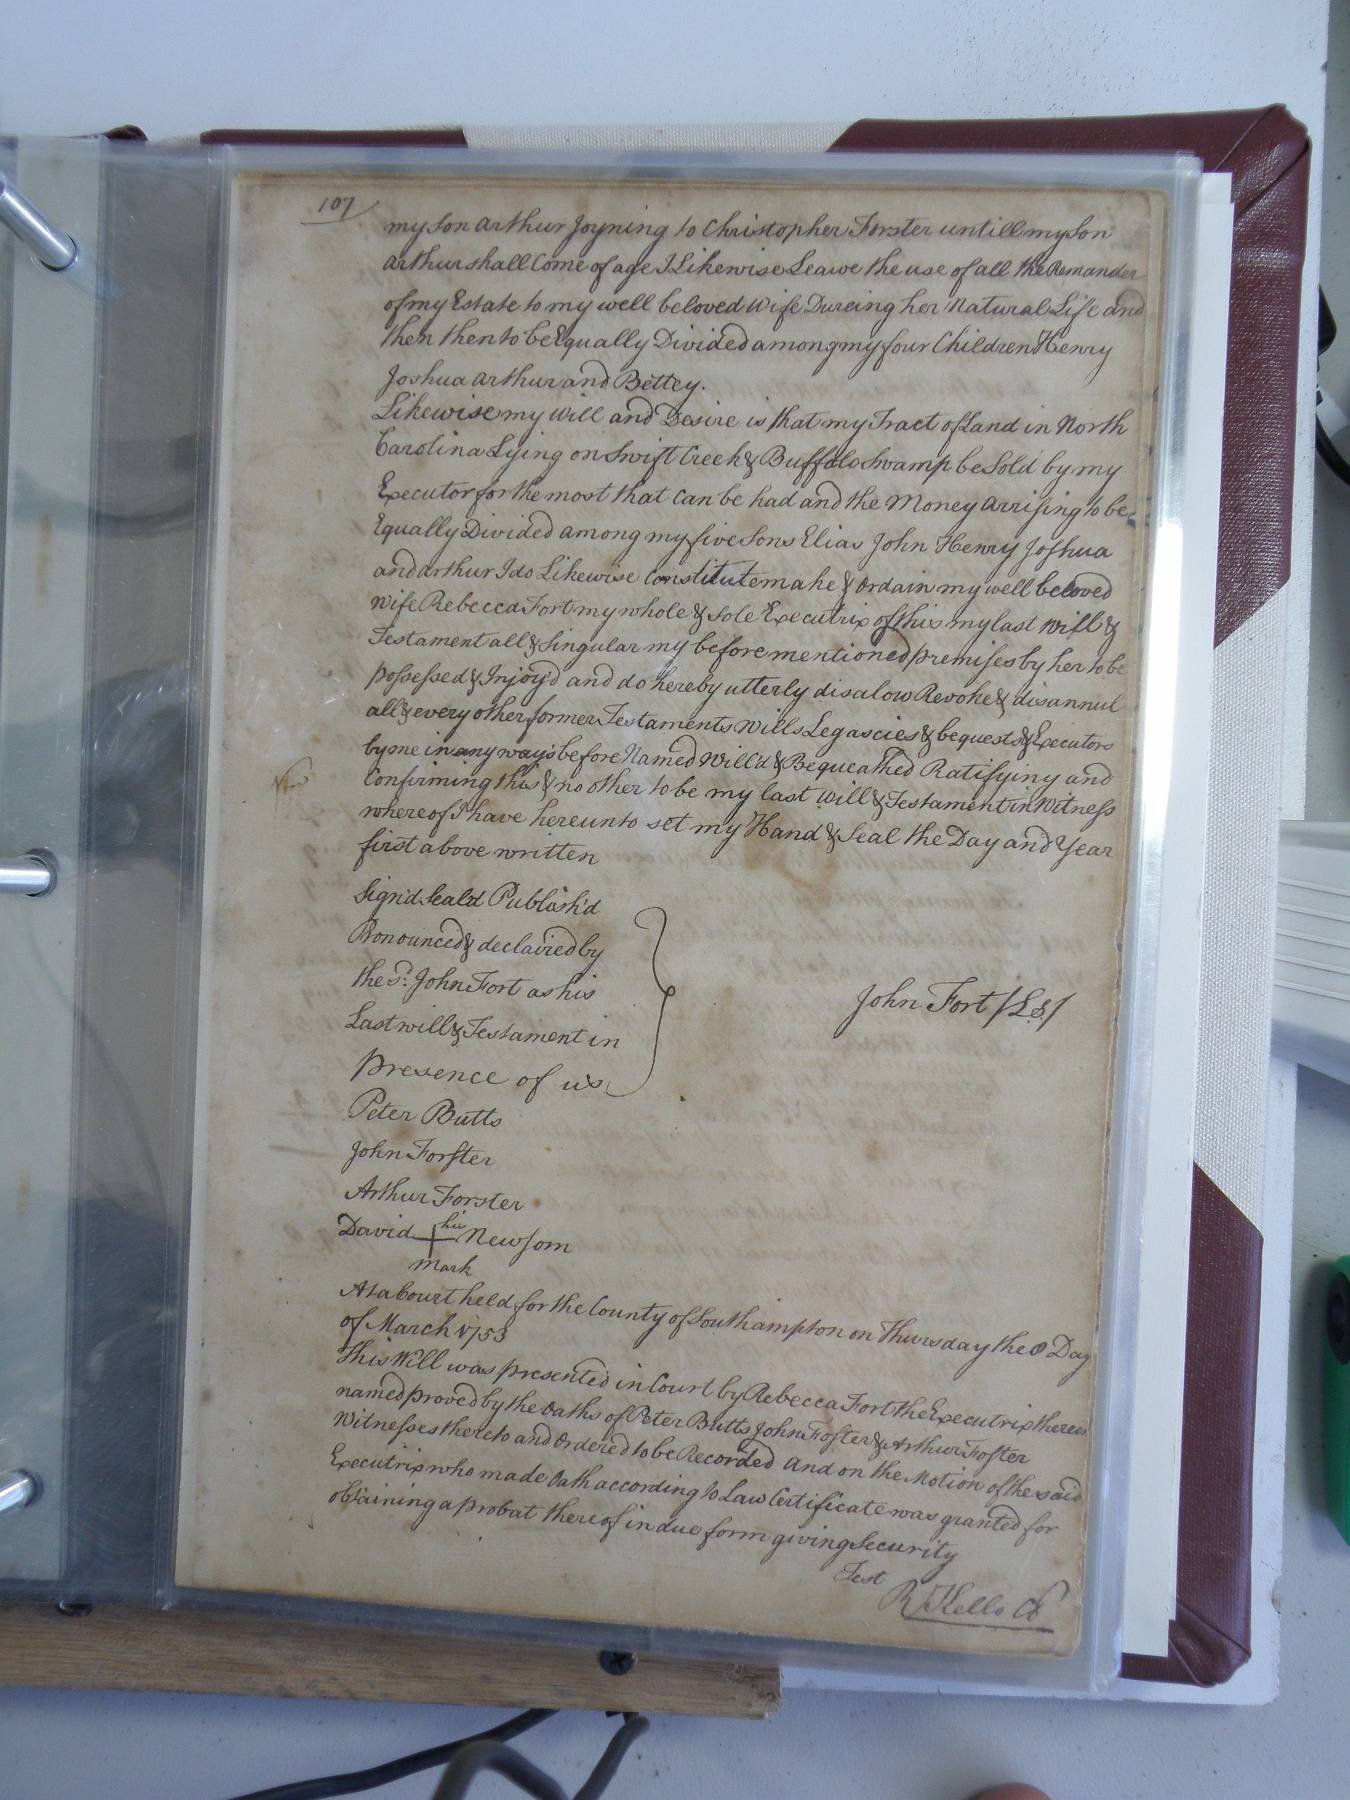 107
my Son Arthur Joyning to Christopher Forster untill my Son
Arthur shall Come of age I Likewise Leave the use of all the Remander
of my Estate to my well beloved Wife Dureing her Natural Life and
then then to be Equally Divided among my four Children Henry
Joshua Arthur and Bettey.
Likewise my Will and Desire is that my Tract of Land in North
Carolina Lying on Swift Creek & Buffalo Swamp be Sold by my
Executor for the most that can be had and the Money arrising to be
Equally Divided among my five Sons Elias John Henry Joshua
and Arthur I do Likewise Constitute make & ordain my well beloved
Wife Rebecca Fort my whole & sole Executrix of this my last Will &
Testament all & Singular my before mentioned premises by her to be
possessed & Injoy'd and do hereby utterly disalow Revoke & disannul
all & every other former Testaments Wills Legascies & bequests & Executors
by me in any ways before Named Will'd & Bequeathed Ratifying and
Confirming this & no other to be my last Will & Testament in Witness
whereof I have hereunto set my Hand & Seal the Day and Year
first above written
Sign'd Seald Publish'd
Pronounced & declaired by
the sd. John Fort as his
Last will & Testament in
presence of us
John Fort /L.S./
Peter Butts
John Forster
Arthur Forster
David his Newsom
mark
At a Court held for the County of Southampton on Thursday the 8 Day
of March 1753
This Will was presented in Court by Rebecca Fort the Executrix therein
named proved by the Oaths of Peter Butts John Foster & Arthur Foster
Witnesses thereto and Ordered to be Recorded and on the Motion of the said
Executrix who made Oath according to Law Certificate was granted for
obtaining a probat thereof in due form giving Security
Test
R Kello